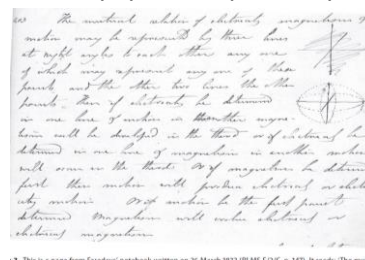 The mutual relation of electricity, magnetism &
motion may be represented by three lines
at right angles to each other, any one
of which may represent any one of these
points and the other two lines the other
points. Then if electricity be determined
in one line of motion in another magne-
tism will be developed in the third or if electricity be
determined in one line & magnetism in another motion
will occur in the third. Or if magnetism be determined
first then motion will produce electricity or electri-
city motion. Or if motion be the first point
determined Magnetism will evolve electricity or
electricity magnetism